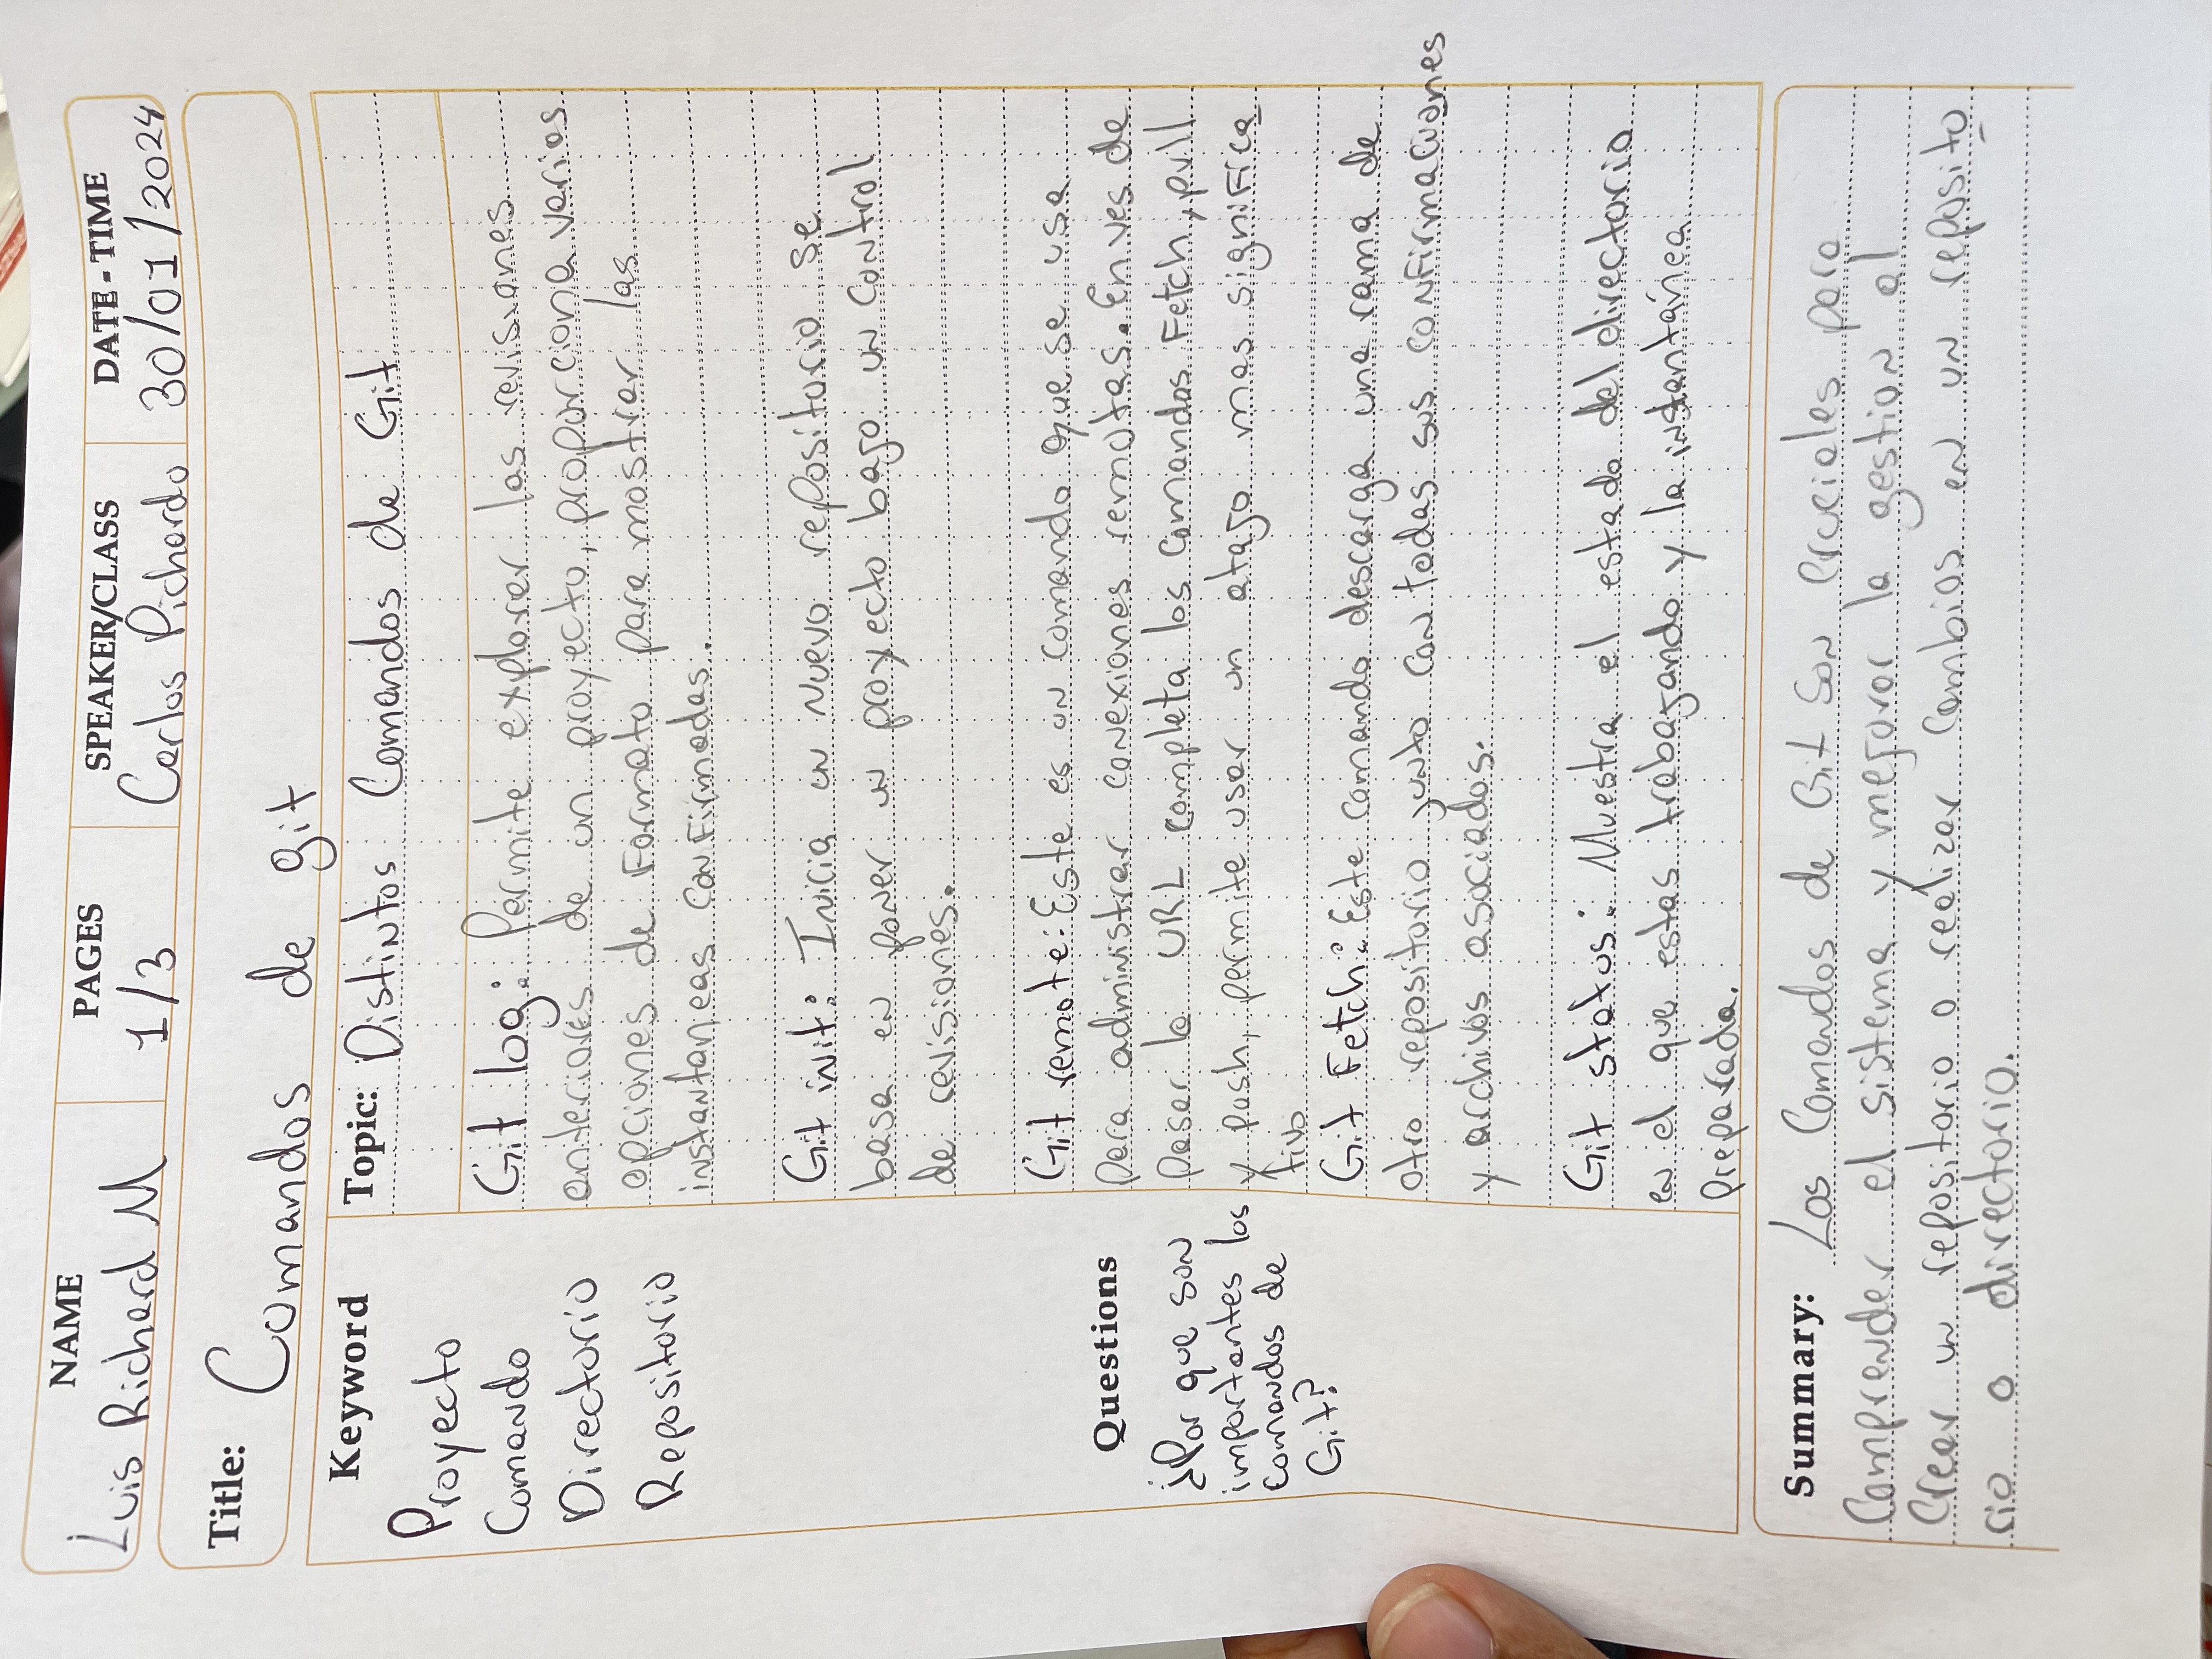 NAME
Luis Richard M
PAGES
1/3
SPEAKER/CLASS
Carlos Pichardo
DATE - TIME
30/01/2024
Title: Comandos de git
Keyword
Proyecto
Comando
Directorio
Repositorio
Questions
¿Por que son
importantes los
comandos de
Git?
Topic: Distintos Comandos de Git
Git log: Permite explorer las revisiones
anteriores de un proyecto, proporciona varias
opciones de Formato para mostrar las
instantaneas confirmadas.
Git init: Inicia un nuevo repositorio se
basa en poner un proyecto bajo un control
de revisiones.
Git remote: Este es un comando que se usa
para administrar conexiones remotas. En ves de
pasar la URL completa los comandos Fetch, pull
y push, permite user un atajo mas significa
tivo
Git Fetch: Este comando descarga una rama de
otro repositorio junto con todas sus confirmaciones
y archivos asociados.
Git status: Muestra el estado del directorio
en el que estas trabajando y la instantánea
preparada.
Summary: Los Comandos de Git son cruciales para
Comprender el sistema y mejorar la gestion al
Crear un repositorio o realizar cambios en un reposito
rio o directorio.